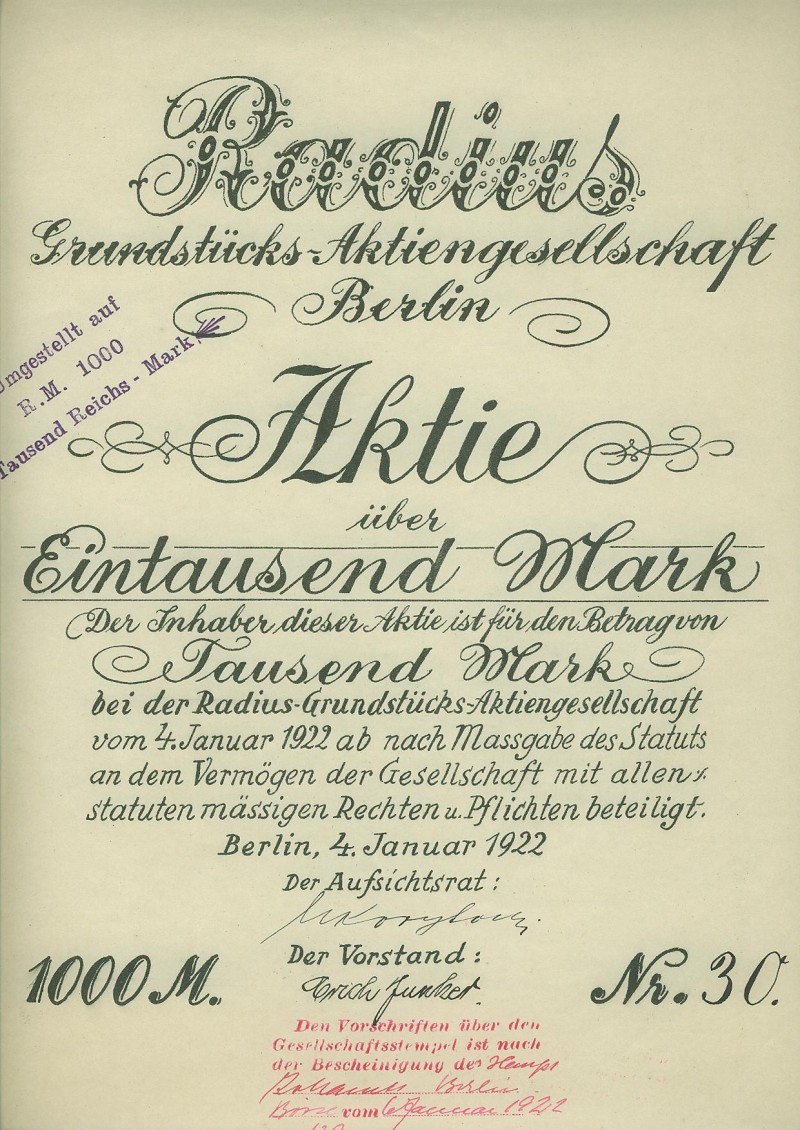 Radius
Grundstücks-Aktiengesellschaft
Berlin
Umgestellt auf
R.M. 1000
Tausend Reichs-Mark
Aktie
über
Eintausend Mark
Der Inhaber dieser Aktie ist für den Betrag von
Tausend Mark
bei der Radius-Grundstücks-Aktiengesellschaft
vom 4. Januar 1922 ab nach Massgabe des Statuts
an dem Vermögen der Gesellschaft mit allen
statuten mässigen Rechten u. Pflichten beteiligt.
Berlin, 4. Januar 1922
Der Aufsichtsrat:
Der Vorstand:
Erich Junker.
1000 M.
Nr. 30.
Den Vorschriften über den
Gesellschaftsstempel ist nach
der Bescheinigung des
Berlin
vom 6 Januar 1922